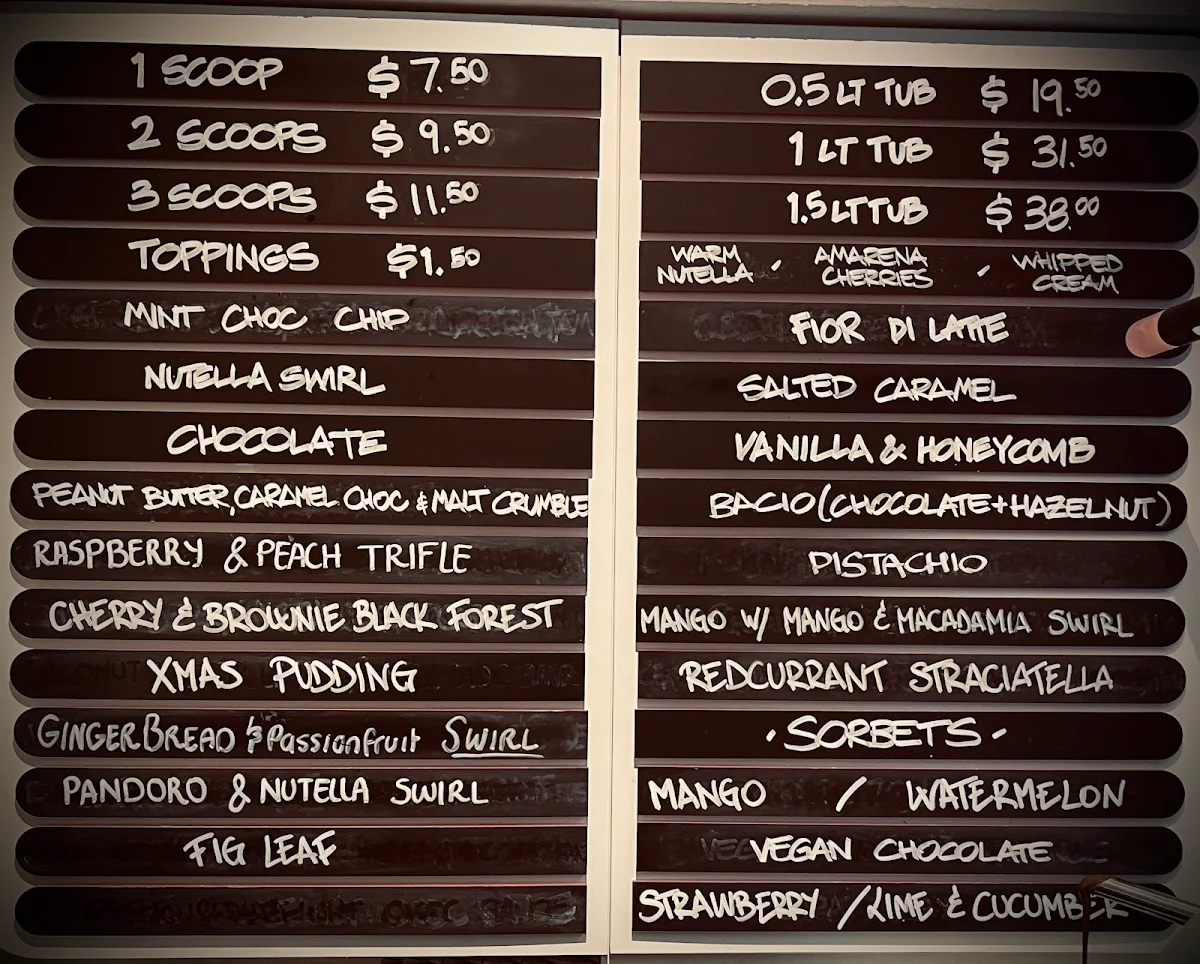 1 SCOOP $7.50
2 SCOOPS $9.50
3 SCOOPS $11.50
TOPPINGS $1.50
MINT CHOC CHIP
NUTELLA SWIRL
CHOCOLATE
PEANUT BUTTER, CARAMEL CHOC & MALT CRUMBLE
RASPBERRY & PEACH TRIFLE
CHERRY & BROWNIE BLACK FOREST
XMAS PUDDING
GINGERBREAD & Passionfruit SWIRL
PANDORO & NUTELLA SWIRL
FIG LEAF
0.5 LT TUB $19.50
1 LT TUB $31.50
1.5 LT TUB $38.00
WARM NUTELLA · AMARENA CHERRIES · WHIPPED CREAM
FIOR DI LATTE
SALTED CARAMEL
VANILLA & HONEYCOMB
BACIO (CHOCOLATE+HAZELNUT)
PISTACHIO
MANGO W/ MANGO & MACADAMIA SWIRL
REDCURRANT STRACIATELLA
· SORBETS ·
MANGO / WATERMELON
VEGAN CHOCOLATE
STRAWBERRY / LIME & CUCUMBER